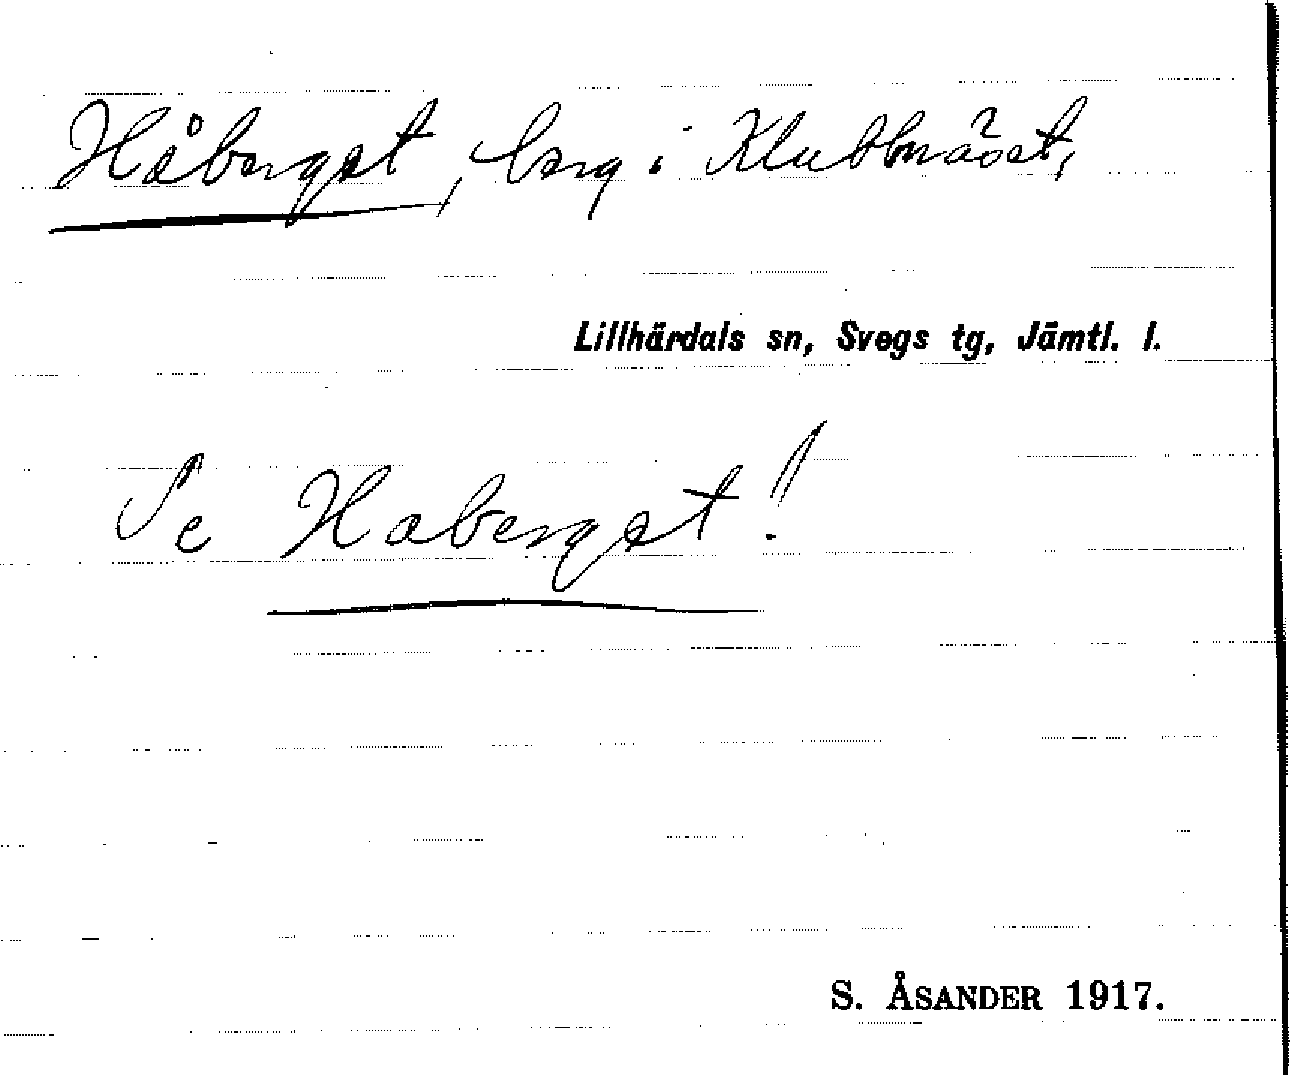 Håberget, berg i Klubbnäset,
Lillhärdals sn, Svegs tg, Jämtl. l.
Se Haberget!
S. ÅSANDER 1917.